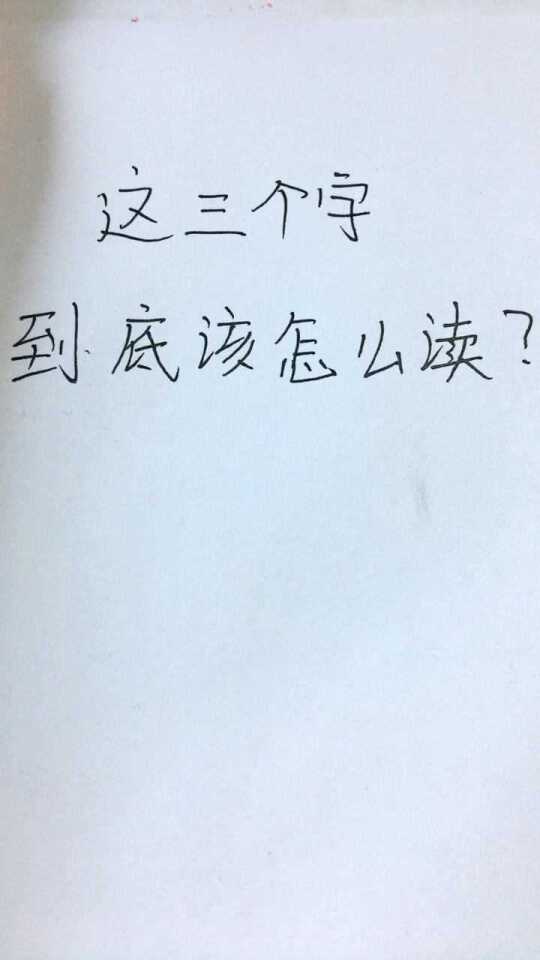 这三个字
到底该怎么读?